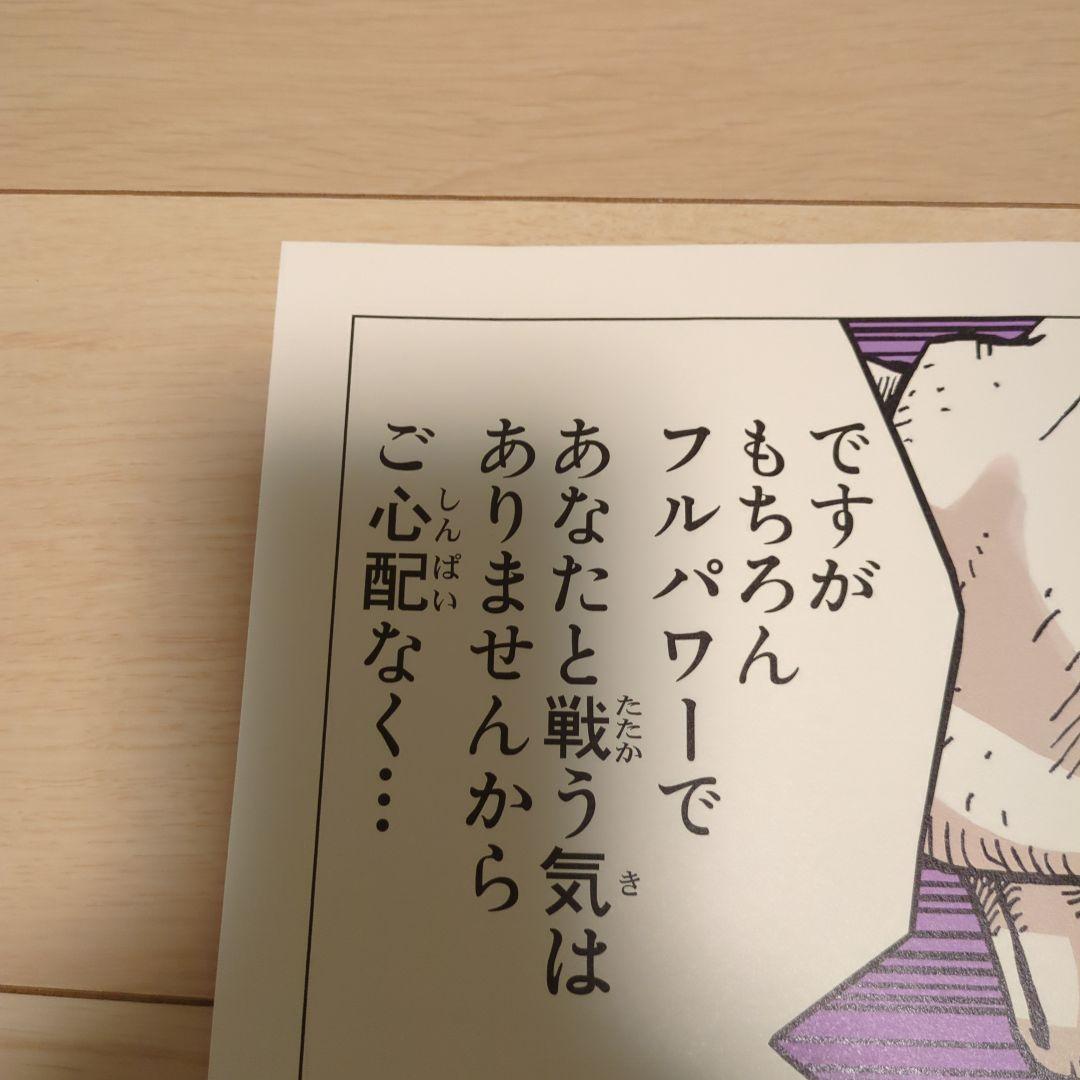 ですが
もちろん
フルパワーで
あなたと戦う気は
ありませんから
ご心配なく…